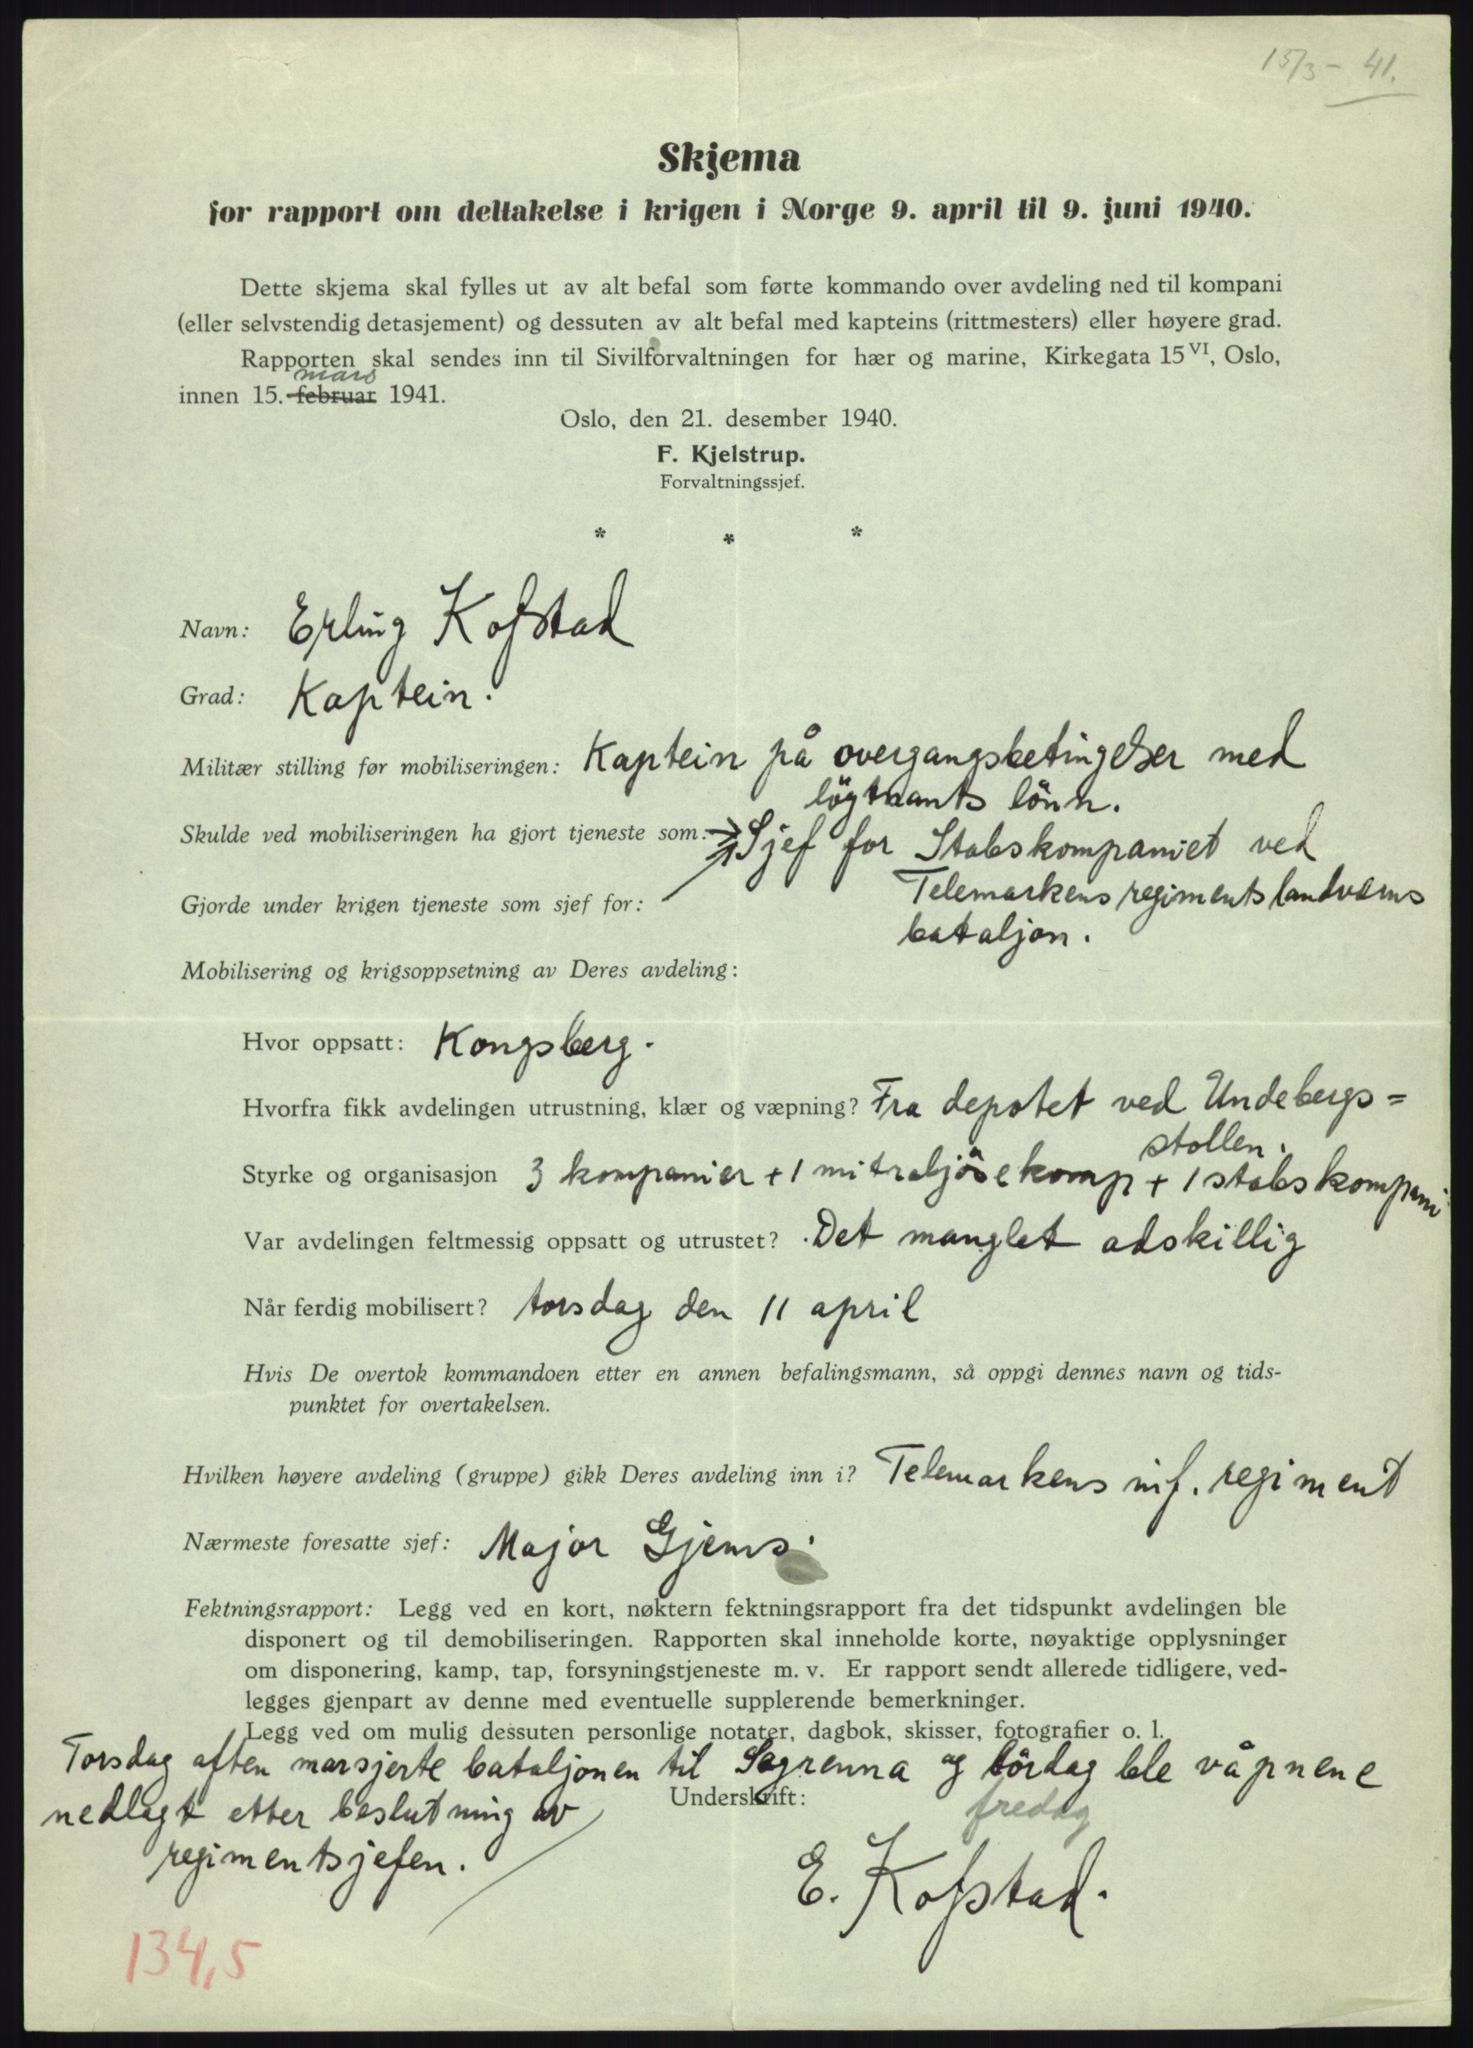 15/3 - 41.
Skjema
for rapport om deltakelse i krigen i Norge 9. april til 9. juni 1940.
Dette skjema skal fylles ut av alt befal som førte kommando over avdeling ned til kompani
(eller selvstendig detasjement) og dessuten av alt befal med kapteins (rittmesters) eller høyere grad.
Rapporten skal sendes inn til Sivilforvaltningen for hær og marine, Kirkegata 15 VI, Oslo,
mars
innen 15. februar 1941.
Oslo, den 21. desember 1940.
F. Kjelstrup.
Forvaltningssjef.
* * *
Navn: Erling Kofstad
Grad: Kaptein.
Militær stilling før mobiliseringen: Kaptein på overgangsbetingelser med
löytnants lönn.
Skulde ved mobiliseringen ha gjort tjeneste som: Sjef for Stabskompaniet ved
Telemarkens regiments landværns
Gjorde under krigen tjeneste som sjef for:
bataljon.
Mobilisering og krigsoppsetning av Deres avdeling:
Hvor oppsatt: Kongsberg.
Hvorfra fikk avdelingen utrustning, klær og væpning? Fra depotet ved Undebergs=
stollen.
Styrke og organisasjon 3 kompanier + 1 mitraljösekomp + 1 stabskompani
Var avdelingen feltmessig oppsatt og utrustet? Det manglet adskillig
Når ferdig mobilisert? torsdag den 11 april
Hvis De overtok kommandoen etter en annen befalingsmann, så oppgi dennes navn og tids-
punktet for overtakelsen.
Hvilken høyere avdeling (gruppe) gikk Deres avdeling inn i? Telemarkens inf. regiment
Nærmeste foresatte sjef: Major Gjems.
Fektningsrapport: Legg ved en kort, nøktern fektningsrapport fra det tidspunkt avdelingen ble
disponert og til demobiliseringen. Rapporten skal inneholde korte, nøyaktige opplysninger
om disponering, kamp, tap, forsyningstjeneste m. v. Er rapport sendt allerede tidligere, ved-
legges gjenpart av denne med eventuelle supplerende bemerkninger.
Legg ved om mulig dessuten personlige notater, dagbok, skisser, fotografier o. l.
Torsdag aften marsjerte bataljonen til Sagrenna og lördag ble våpnene
Underskrift:
fredag
nedlagt etter beslutning av
regimentsjefen.
E. Kofstad.
134,5